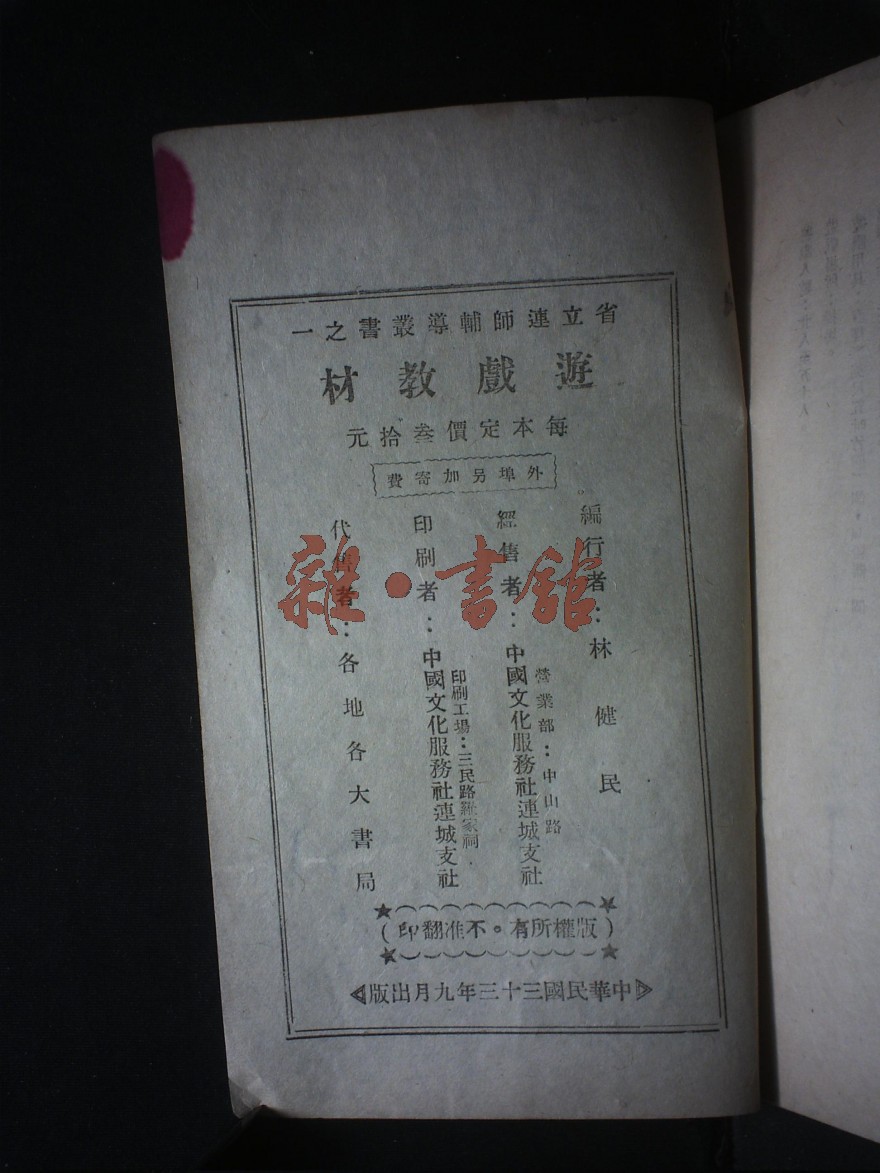 省立連師輔導叢書之一
遊戲教材
每本定價叁拾元
外埠另加寄費
編行者：林健民
經售者：中國文化服務社連城支社
營業部：中山路
印刷者：中國文化服務社連城支社
印刷工場：三民路羅家祠
代售者：各地各大書局
(版權所有。不准翻印)
中華民國三十三年九月出版
雜·書館